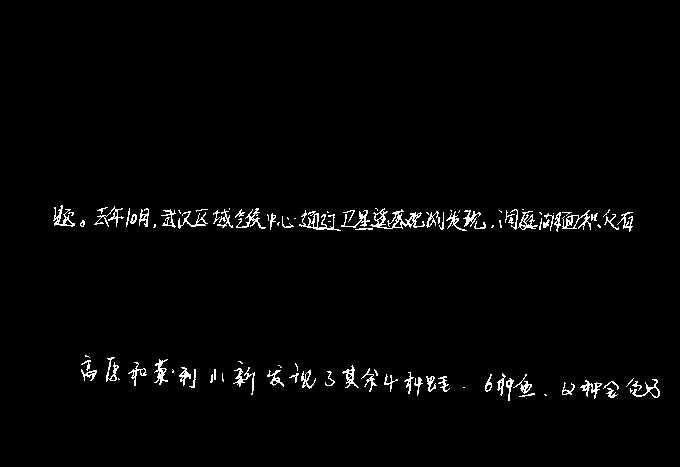 题。去年10月,武汉区域气候中心通过卫星遥感观测发现,洞庭湖面积仅有
高原和莱利小新发现了其余4种蛙、6种鱼、